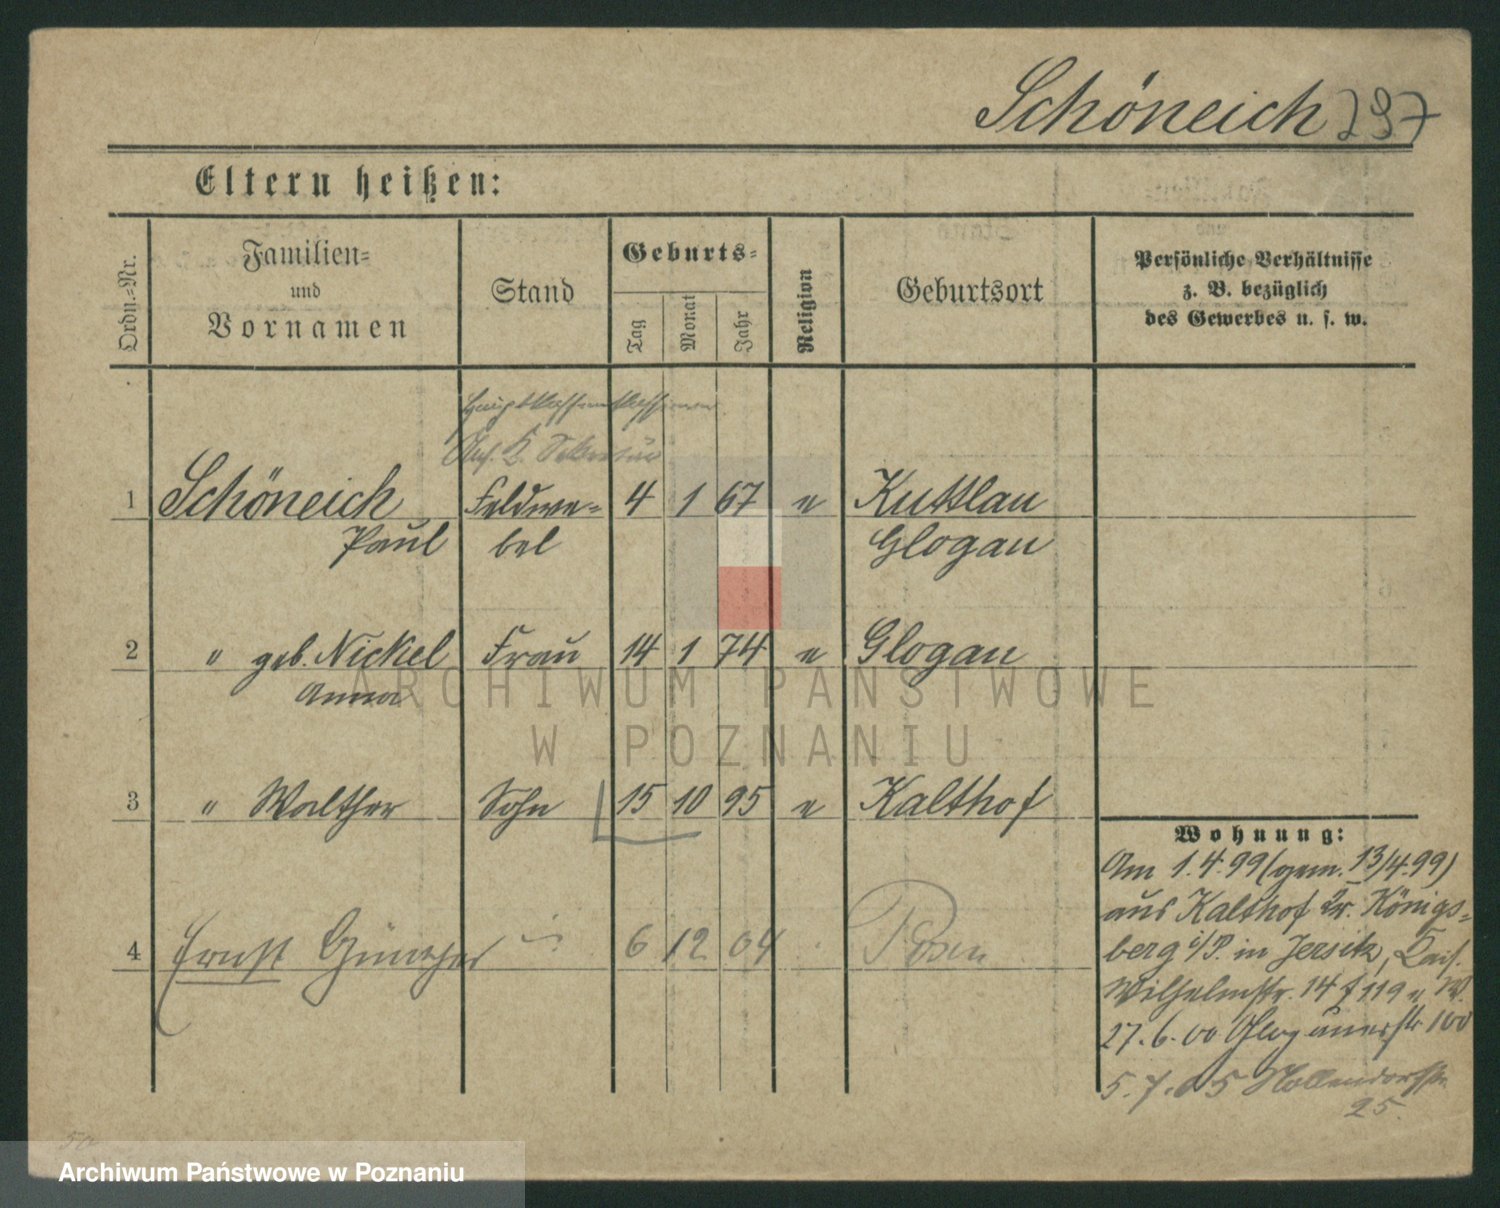 Schöneich 297
Eltern heißen:
Ordn.-Nr.
Familien-
und
Vornamen
Stand
Geburts-
Tag
Monat
Jahr
Religion
Geburtsort
Persönliche Verhältnisse
z. B. bezüglich
des Gewerbes u. s. w.
Sekretär
1 Schöneich Feldwe- 4 1 67 e Kuttlau
Paul bel Glogau
2 " geb. Nickel Frau 14 1 74 e Glogau
Anna
3 " Walther Sohn 15 10 95 e Kalthof
4 Ernst Günther 6 12 04 Posen
Wohnung:
Am 1.4.99 (gem. 13/4.99)
aus Kalthof Kr. Königs-
berg i/P. in Jersitz, Kais.
Wilhelmstr. 14
27.6.00 Glogauerstr 100
5.7.05 Hollendorfstr
25.
ARCHIWUM PAŃSTWOWE
W POZNANIU
Archiwum Państwowe w Poznaniu